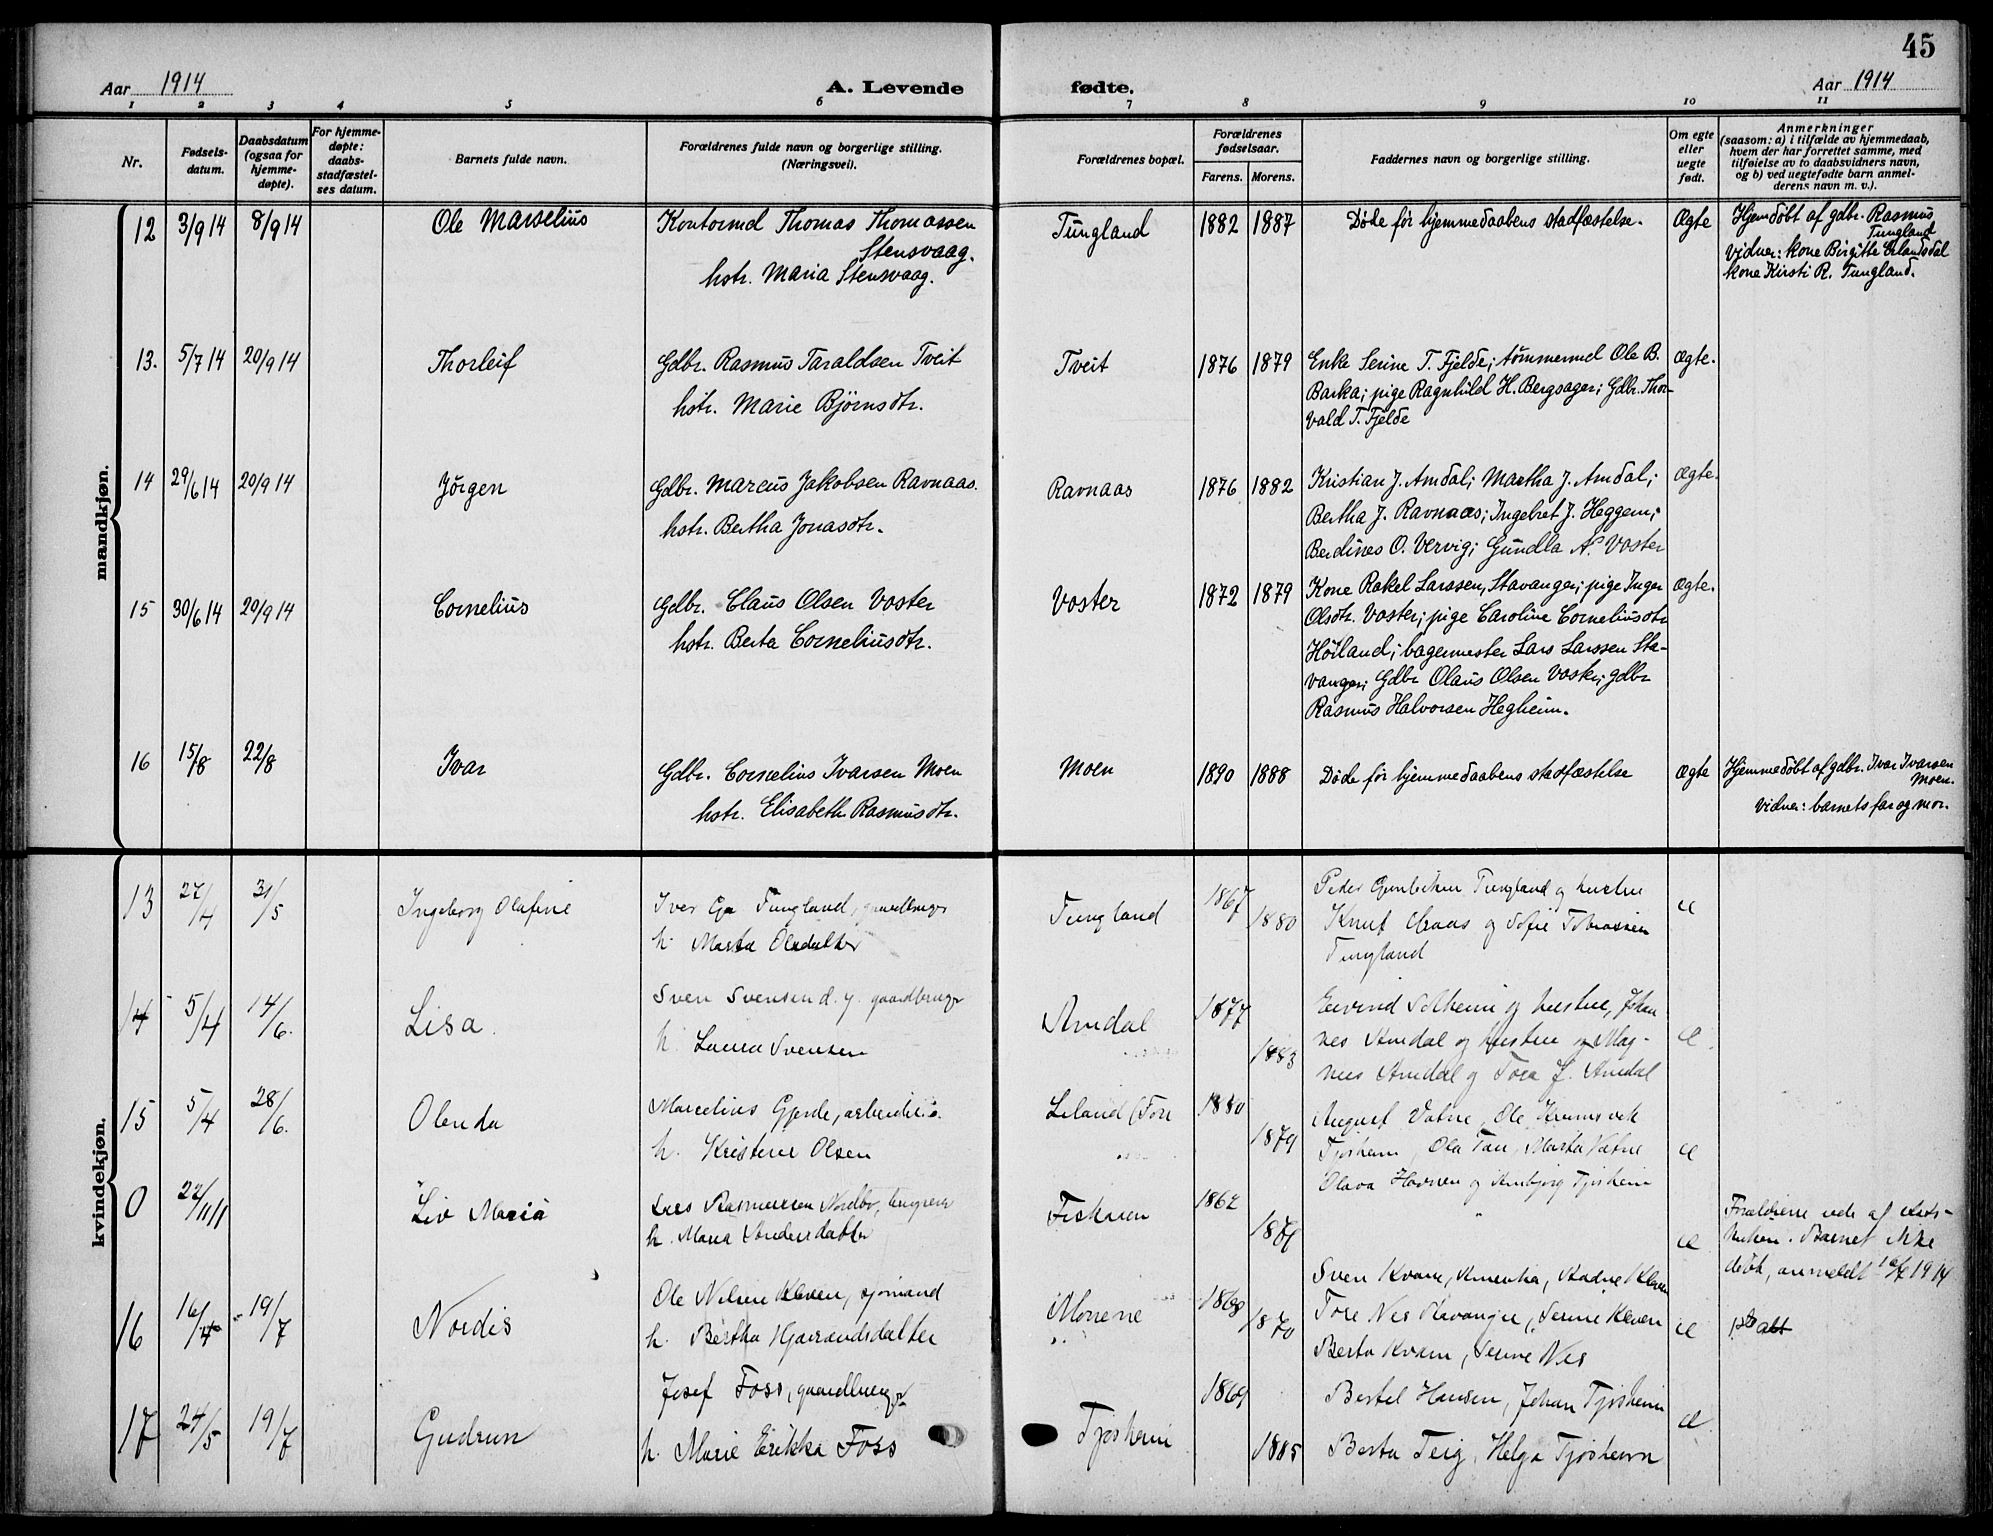 45
Aar 1914
A. Levende fødte.
Aar 1914
1 2 3 4 5 6 7 8 9 10 11
Nr.
Fødsels-
datum.
Daabsdatum
(ogsaa for
hjemme-
døpte).
For hjemme-
døpte:
daabs-
stadfæstel-
ses datum.
Barnets fulde navn.
Forældrenes fulde navn og borgerlige stilling.
(Næringsvei).
Forældrenes bopæl.
Forældrenes
fødselsaar.
Farens. Morens.
Faddernes navn og borgerlige stilling.
Om egte
eller
uegte
født.
Anmerkninger
(saasom: a) i tilfælde av hjemmedaab,
hvem der har forrettet samme, med
tilføielse av to daabsvidners navn,
og b) ved uegtefødte barn anmel-
derens navn m. v.).
mandkjøn.
12 3/9 14 8/9 14 Ole Marselius
Kontormd Thomas Thomassen
Stensvaag.
hstr. Maria Stensvaag.
Tungland 1882 1887
Døde før hjemmedaabens stadfæstelse.
Ægte
Hjemdøbt af gdbr. Rasmus
Tungland
Vidner: kone Birgitte Erlandsdal
kone Kirsti R. Tungland.
13. 5/7 14 20/9 14 Thorleif
Gdbr. Rasmus Taraldsen Tveit
hstr. Marie Bjørnsdtr.
Tveit 1876 1879
Enke Serine T. Fjelde; tømmermd Ole B.
Barka; pige Ragnhild H. Bergsager; Gdbr. Thor-
vald T. Fjelde
Ægte.
14 29/6 14 20/9 14 Jørgen
Gdbr. Marcus Jakobsen Ravnaas.
hstr. Bertha Jonasdtr.
Ravnaas 1876 1882
Kristian J. Amdal; Martha J. Amdal;
Bertha J. Ravnaas; Ingebret J. Heggem;
Berdines O. Vervig; Gundla A. Voster
Ægte.
15 30/6 14 20/9 14 Cornelius
Gdbr. Claus Olsen Voster
hstr. Berta Corneliusdtr.
Voster 1872 1879
Kone Rakel Larssen, Stavanger; pige Inger
Olsdtr. Voster; pige Caroline Corneliusdtr
Høiland; bagermester Lars Larssen Sta-
vanger; Gdbr Olaus Olsen Voster; gdbr
Rasmus Halvorsen Hegheim.
Ægte.
16 15/8 22/8 Ivar
Gdbr. Cornelius Ivarsen Moen
hstr. Elisabeth Rasmusdtr.
Moen 1890 1888
Døde før hjemmedaabens stadfæstelse
Ægte
Hjemmedøbt af gdbr. Ivar Ivarsen
Moen.
Vidner: barnets far og mor.
kvindekjøn.
13 27/4 31/5 Ingeborg Olafine
Iver Tungland, gaardbruger
h. Marta Olsdatter
Tungland 1867 1880
Peder Tungland og hustru
Knut og Sofie
Tungland
14 5/4 14/6. Lisa.
Sven Svensen d. y. gaardbruger
h. Laura Svensen
Amdal 1877 1883
Eivind Solheim og hustru, Johan
nes Amdal og hustru og Mag-
nus Amdal og Tora J. Amdal
15 5/4 28/6. Olenda
Marcelius Gjerde, arbeider
h. Kristine Olsen
1880 1879
August Vatne, Ole
Tjøsheim, Ola Tau, Marta Vatne
Olava og Tjøsheim
0 22/11 Liv Maria
Lars Rasmussen Nordbø,
h. Maria Andersdatter
1862
Forældrene ude af stats-
kirken. Barnet ikke
døbt, anmeldt 1914
16 16/4 19/7 Nordis
Ole Nilsen Kleven, sjømand
h. Bertha
Monene 1870
Sven Kvam, Amerika, Kleven
Tore Nes Stavanger, Serine Kleven
Berta Kvam, Serine Nes
17 24/5 19/7 Gudrun
Josef Foss, gaardbruger
h. Marie Erikka Foss
Tjøsheim 1869 1885
Bertel Hansen, Johan Tjøsheim
Berta Teig, Helga Tjøsheim